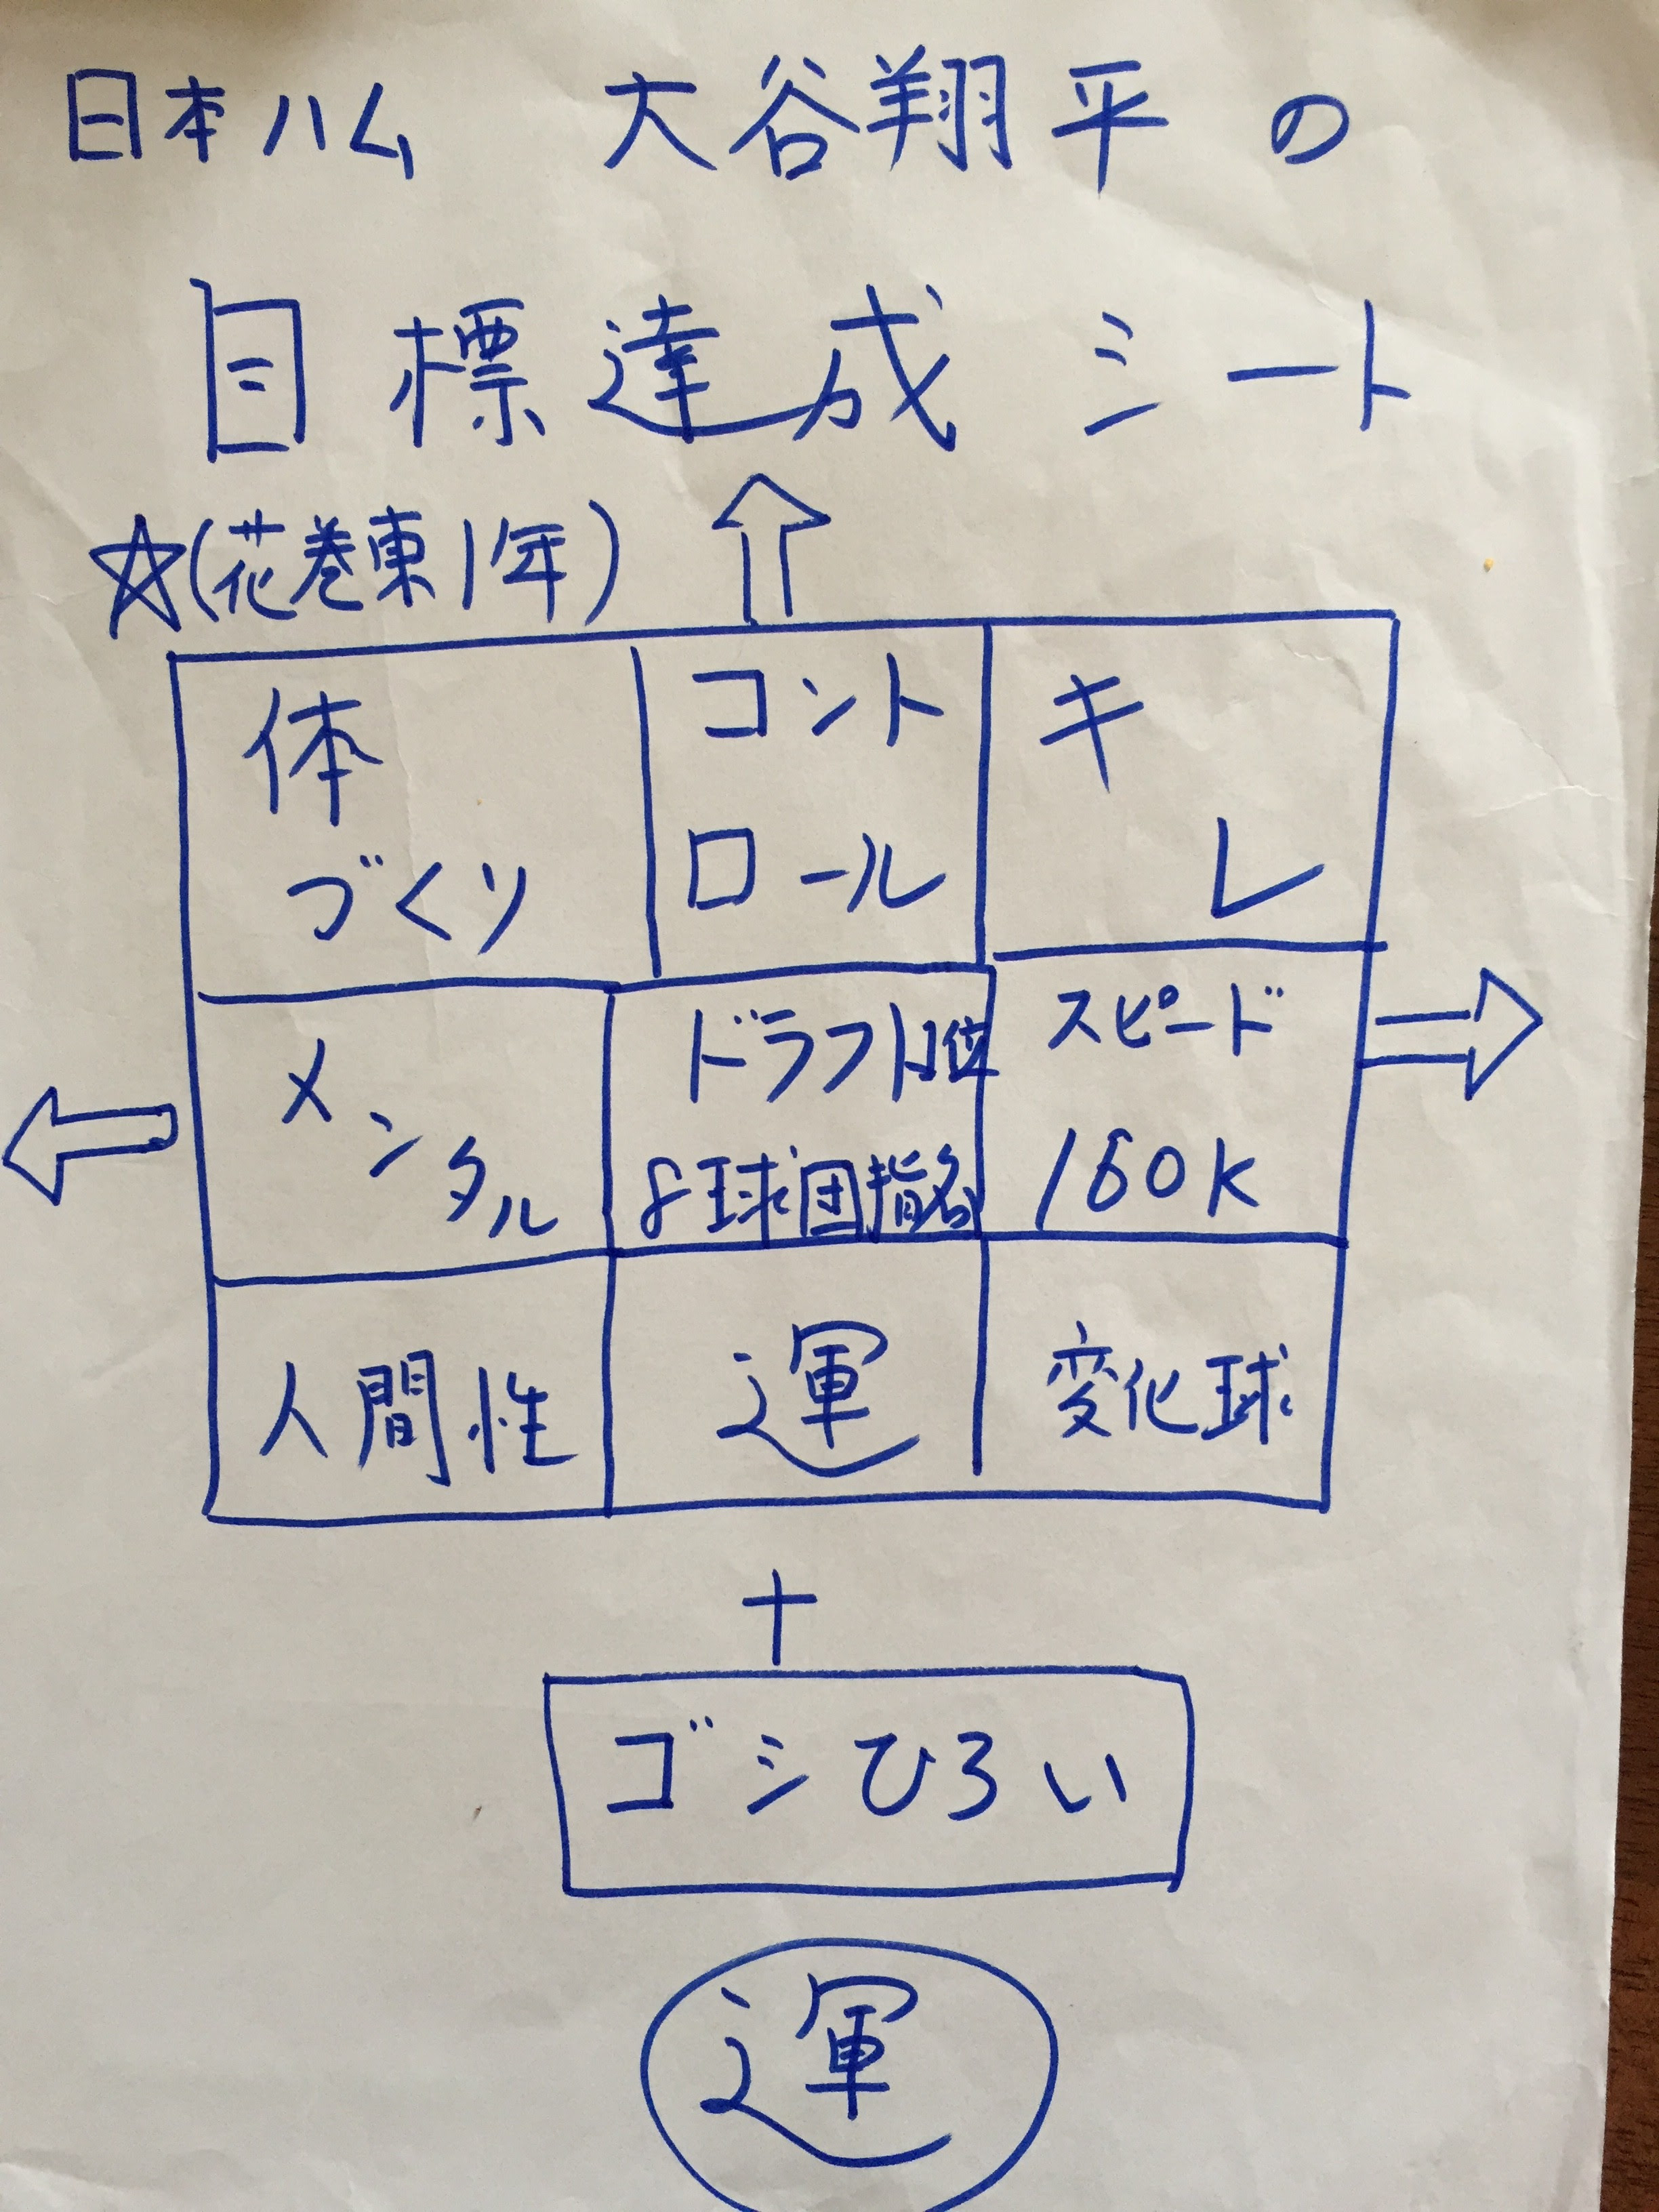 日本ハム 大谷翔平の
目標達成シート
☆(花巻東1年)
体
づくり
コント
ロール
キ
レ
メンタル
ドラフト1位
8球団指名
スピード
160K
人間性
運
変化球
+
ゴミひろい
運